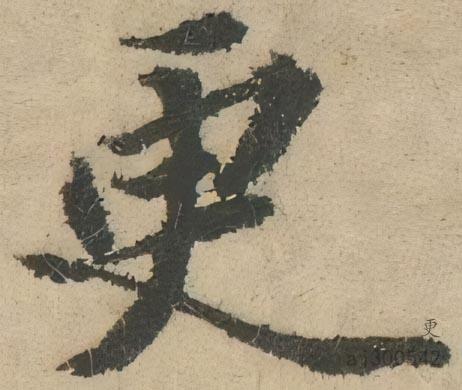 更
更
a1300542